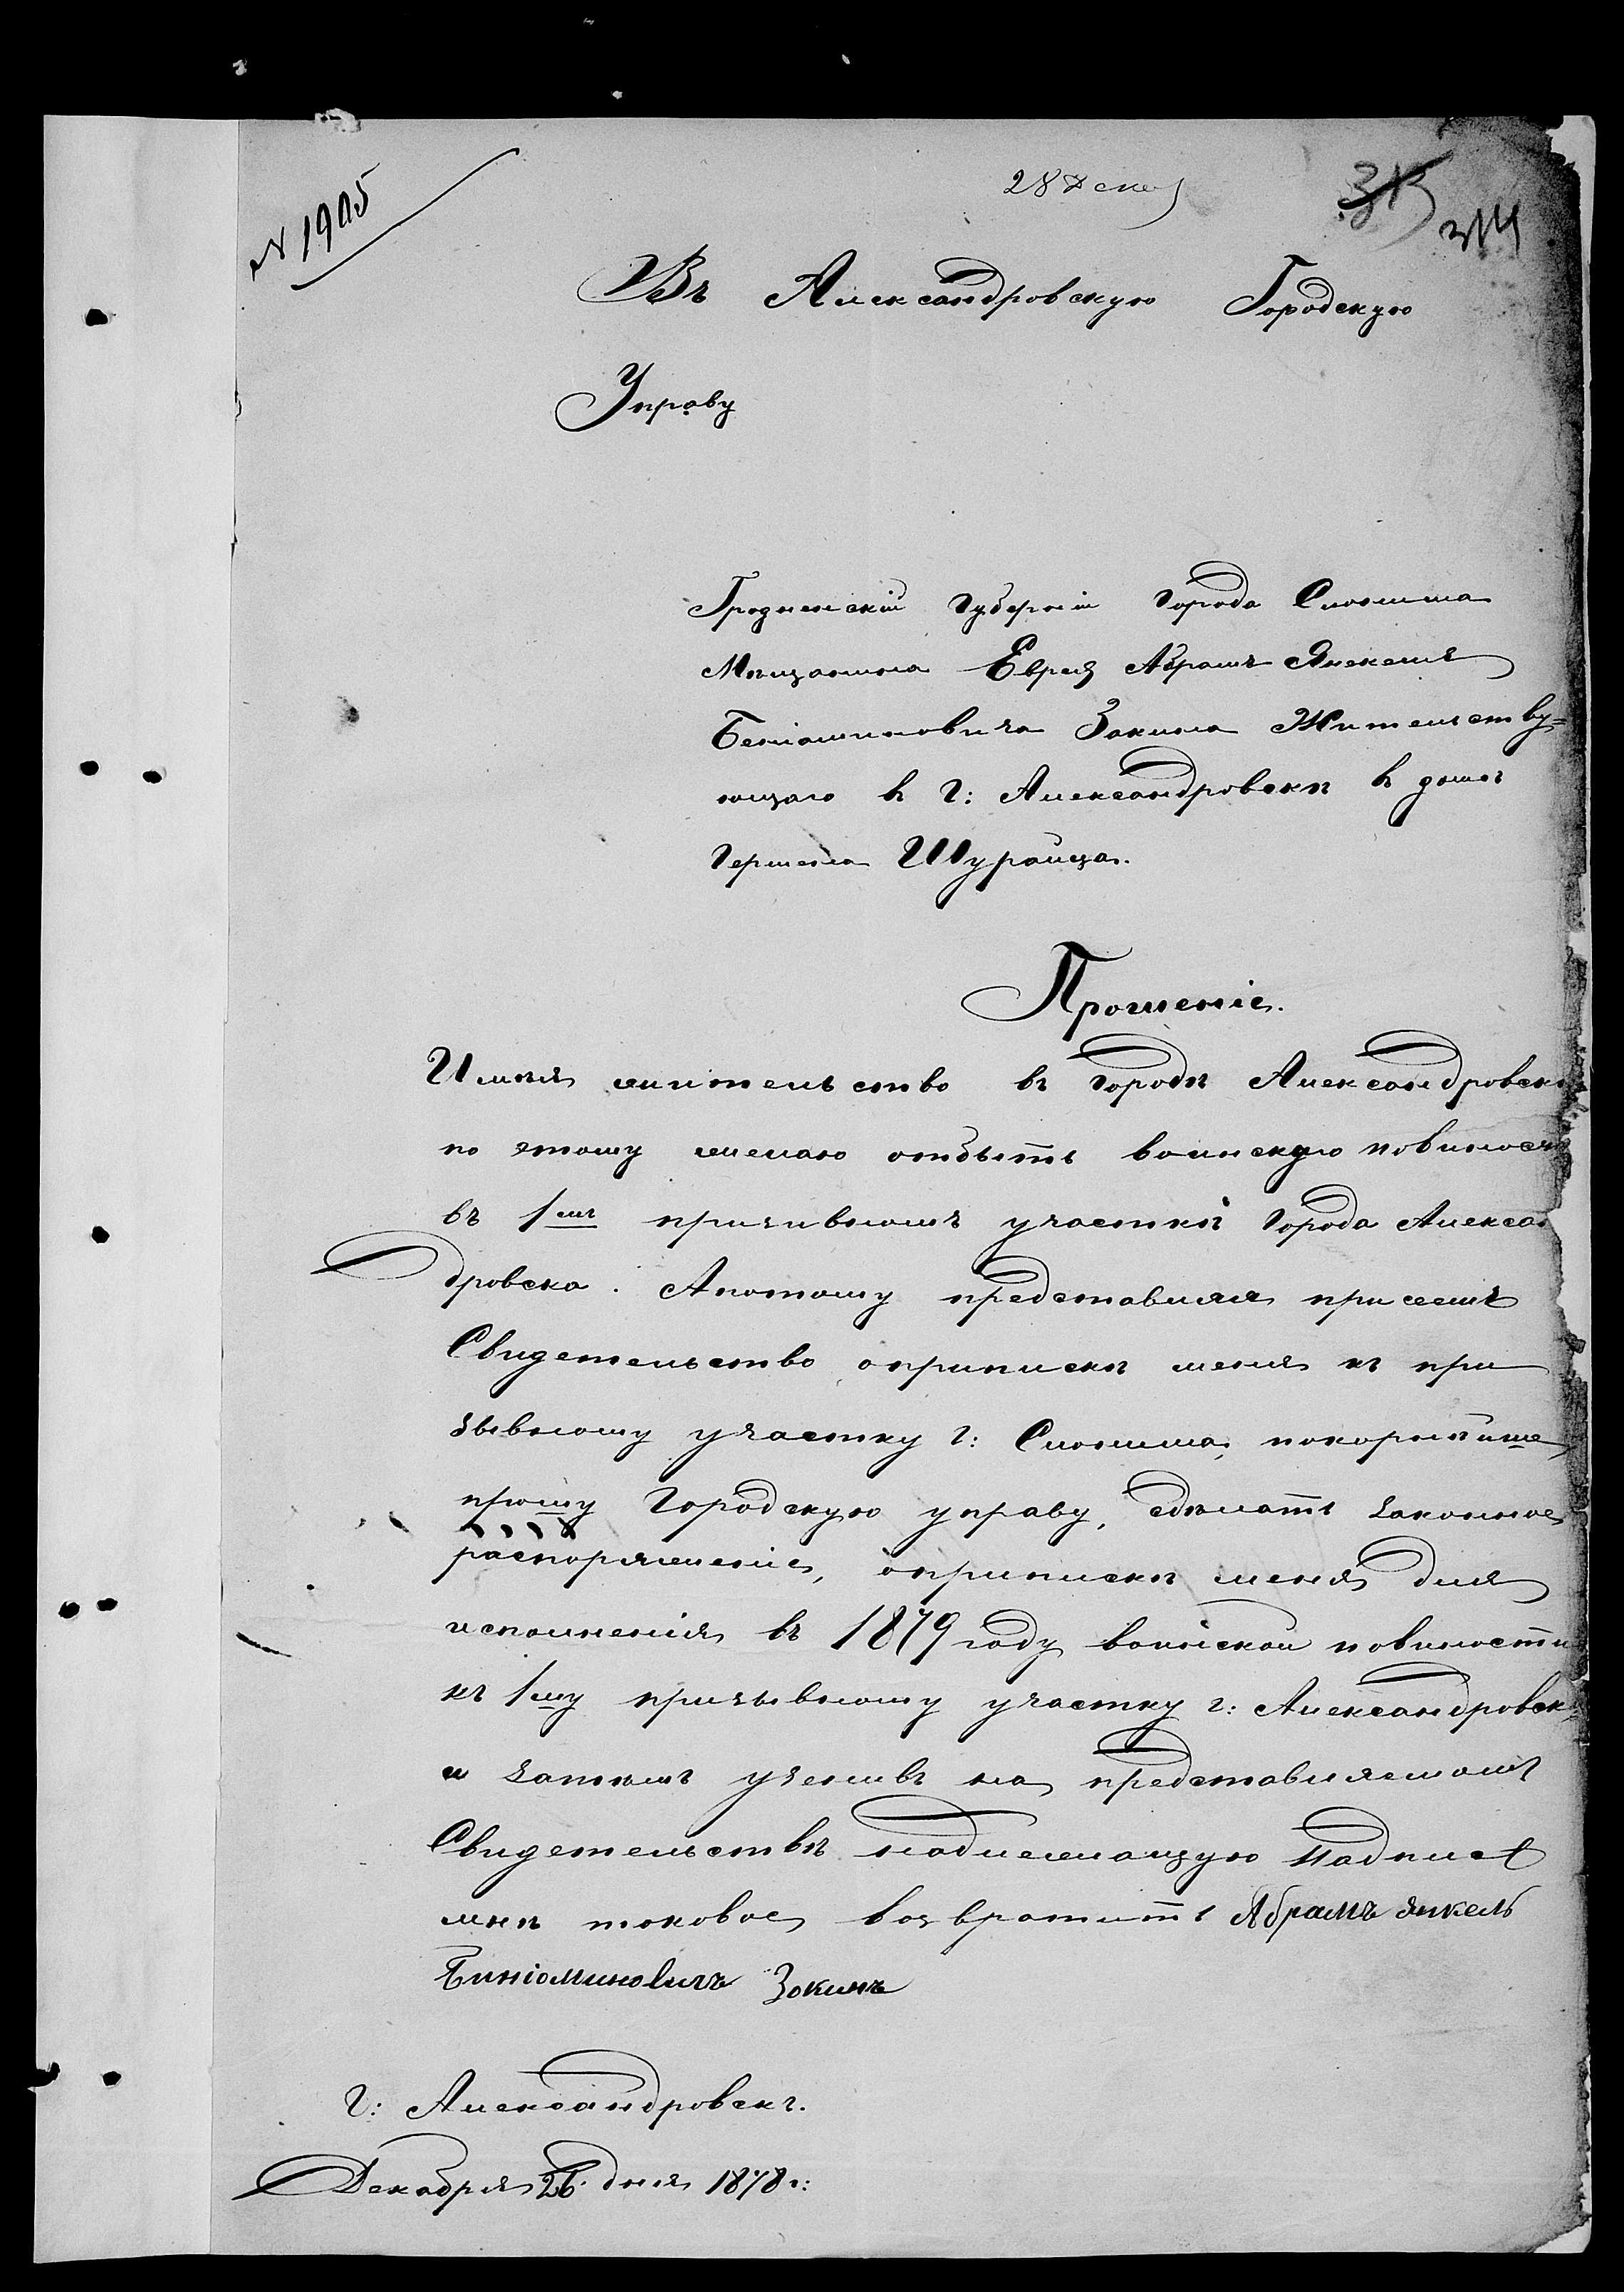 № 1905
28 Дек
313
314
Въ Александровскую Городскую
Управу
Гродненскій Губерніи Города Слонима
Мѣщанина Еврея Абрамъ Янкеля
Беніаминовича Закина Жительству=
ющаго въ г: Александровскѣ въ домѣ
Гершена Шурайца.
Прошеніе.
Имѣя жительство въ городѣ Александровск
по этому желаю отбыть воинскую повиност
въ 1мъ призивномъ участкѣ Города Алексан
дровска. Апотому представляя при семъ
Свидетельство оприпискѣ меня къ при
зывному участку г: Слонима, покорнѣйше
прошу Городскую управу, сдѣлать законное
распоряженіе, оприпискѣ меня для
исполненія въ 1879 году воинской повиности
къ 1му призывному участку г: Александровск
и затемъ учинивъ на представляемомъ
Свидетельствѣ надлежащую Надпись
мнѣ таковое возвратить Абрамъ Янкель
Биніоминовичъ Закинъ
г: Александровскъ.
Декабря 26 дня 1878 г: